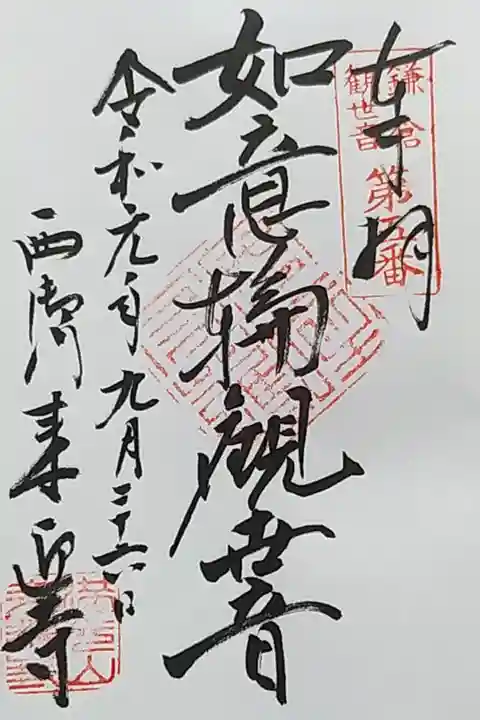 奉拝
鎌倉
観世音
第五番
如意輪觀世音
令和元年九月二十六日
西御門 来迎寺